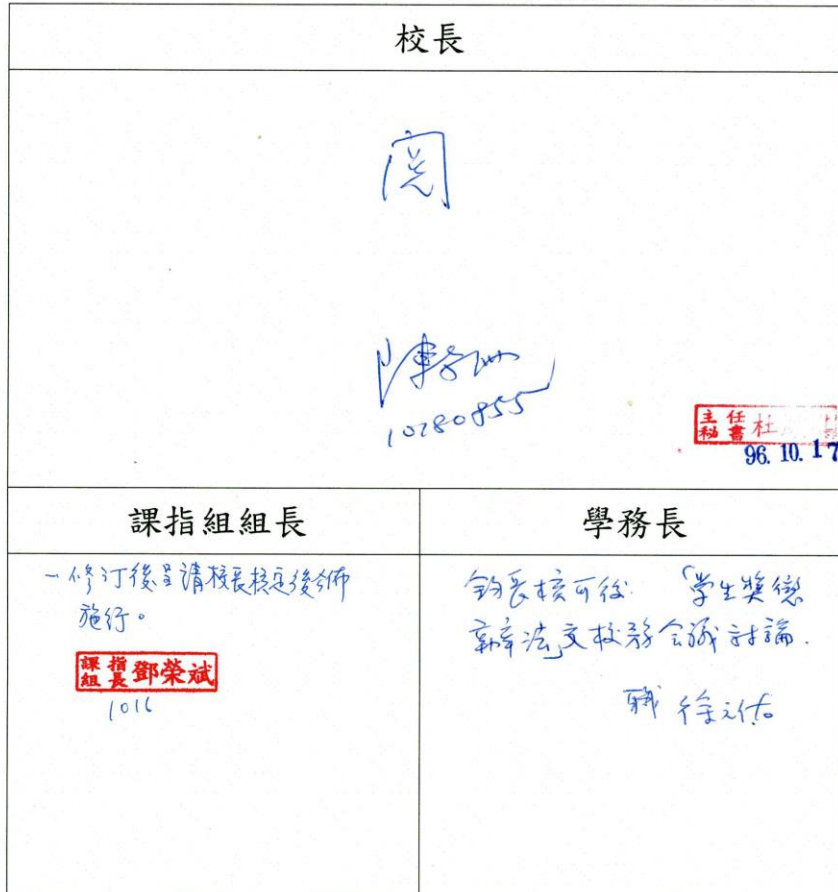 校長
閱
10280855
主任
秘書 杜
96. 10. 17
課指組組長
一修訂後呈請校長核定後公佈
施行。
課指
組長 鄧榮斌
1016
學務長
鈞長核可後 「學生獎懲
辦法」交校務会議討論.
職 徐元佑